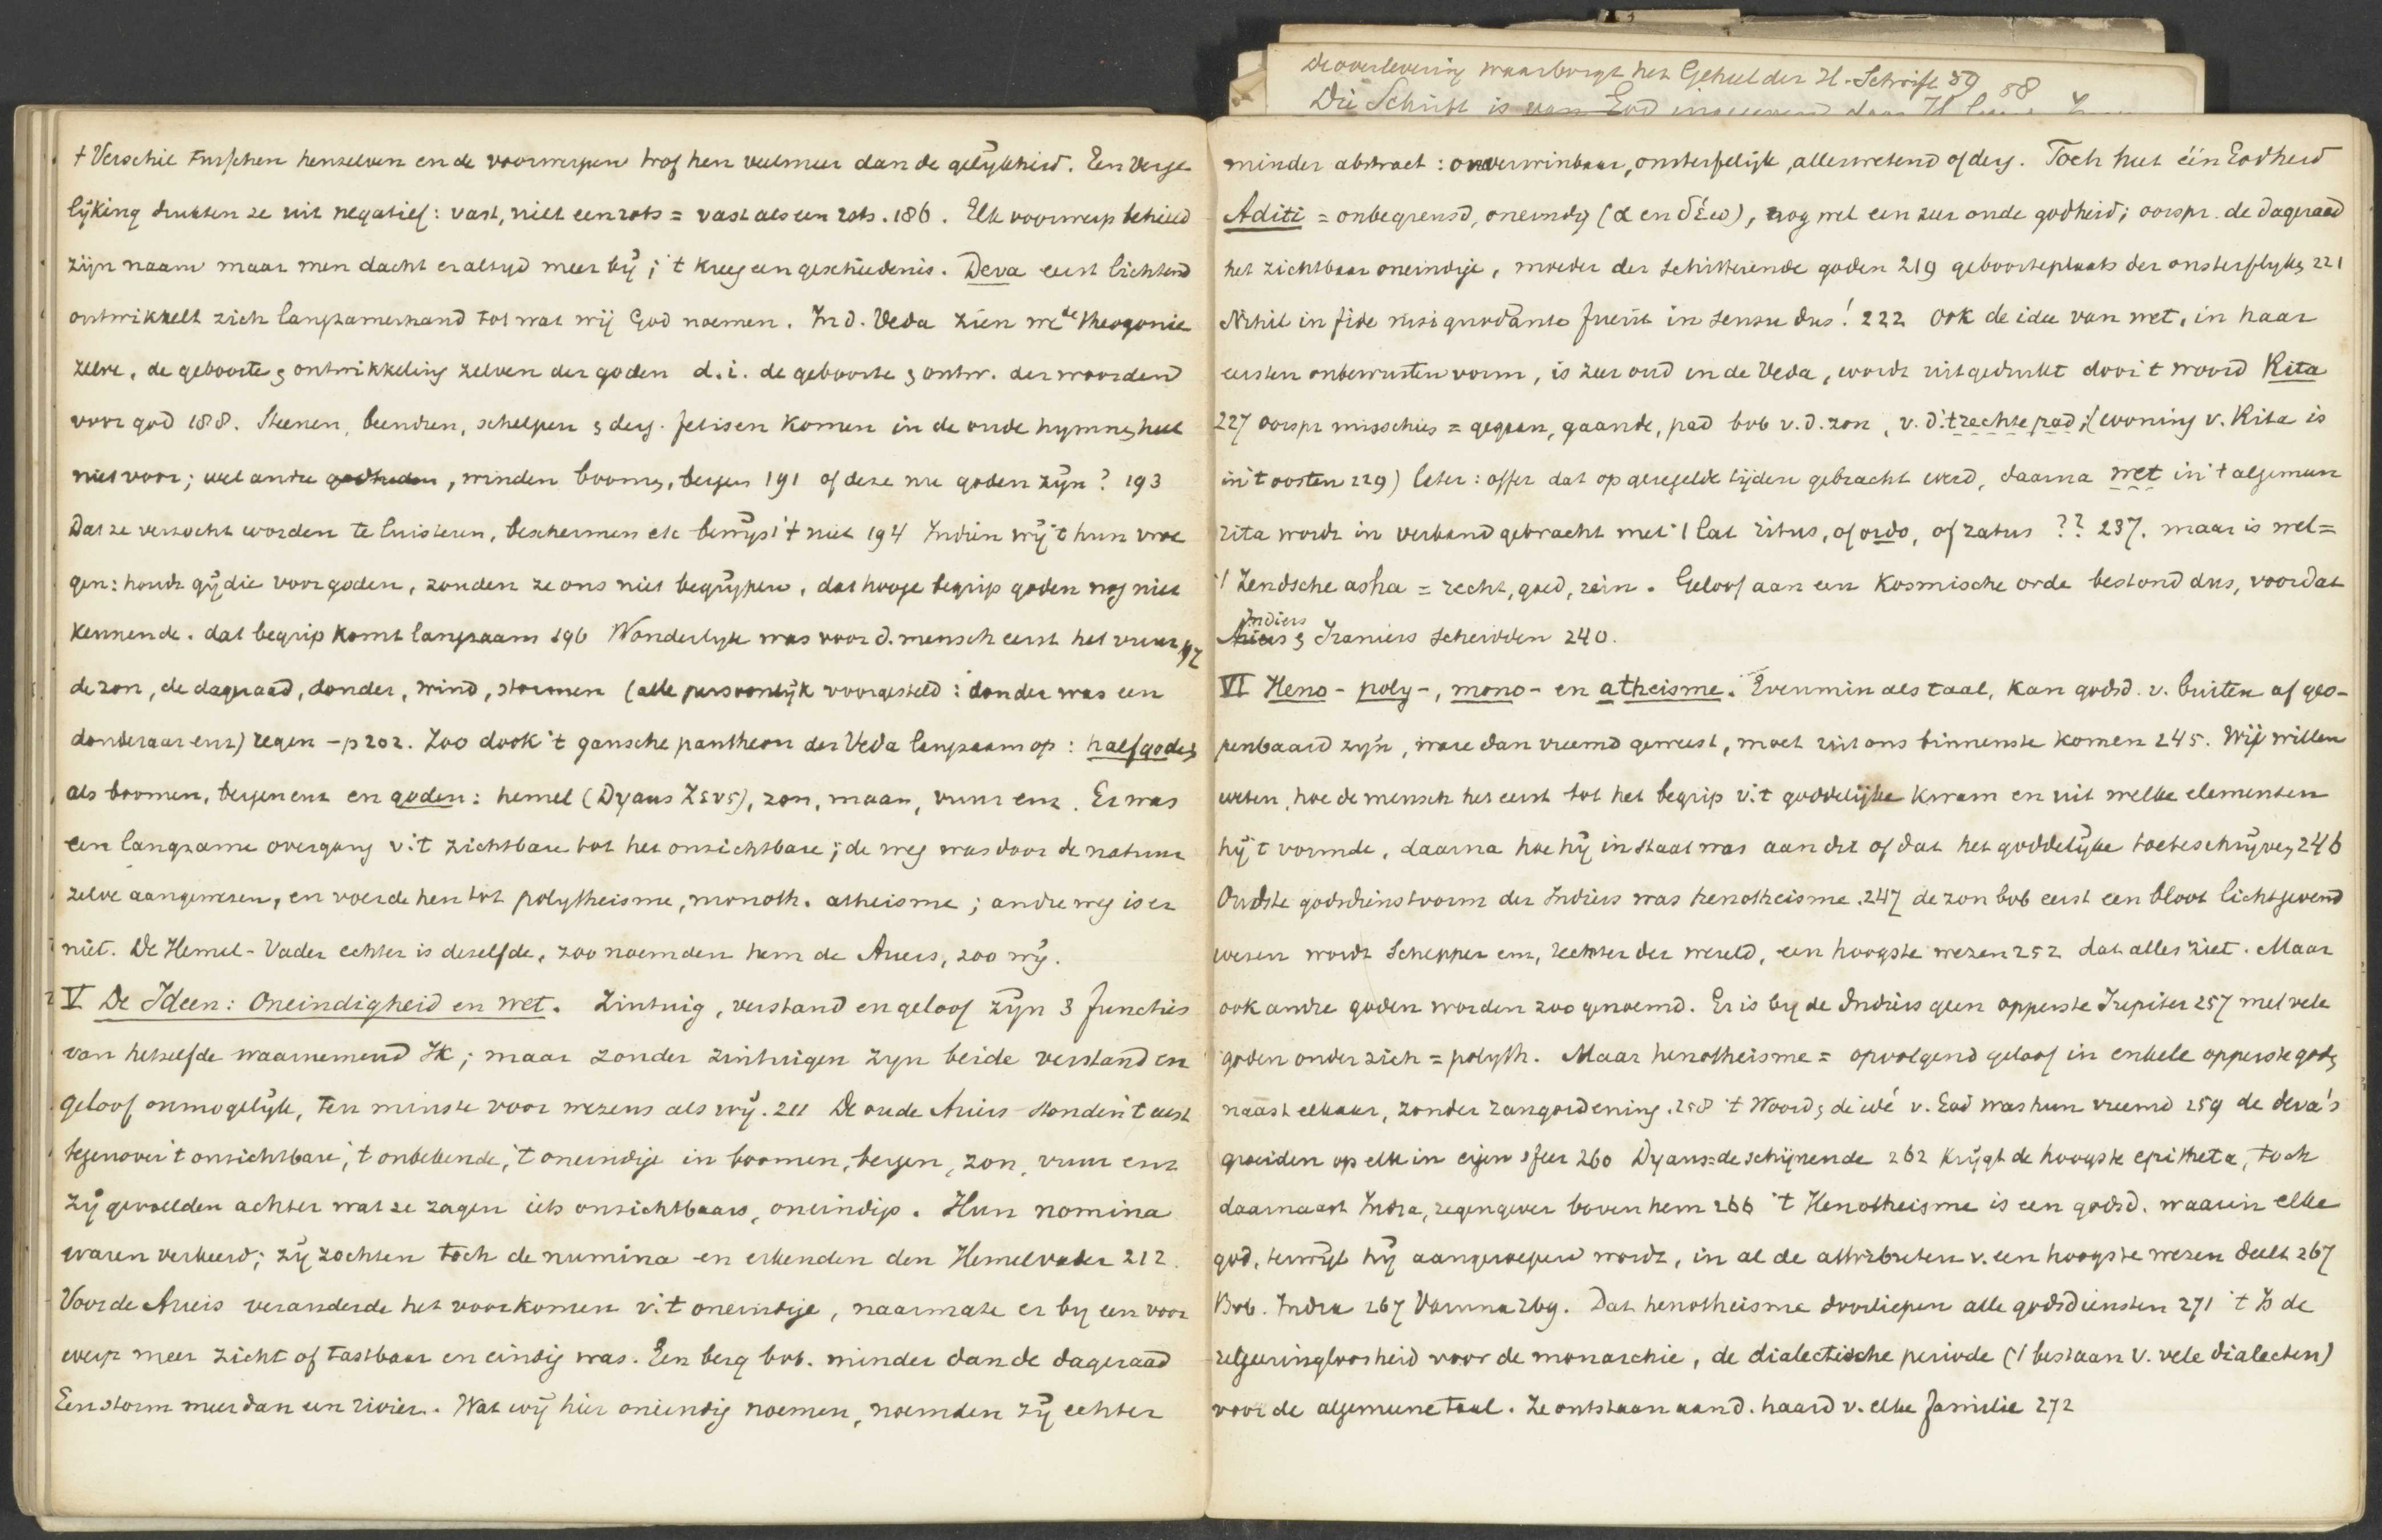 't Verschil tusschen henzelven en de voorwerpen trof hen veelmeer dan de gelijkheid. Een verge
lijking drukten ze uit negatief: vast, niet een rots = vast als een rots. 186. Elk voorwerp behield
zijn naam maar men dacht er altijd meer bij; 't kreeg een geschiedenis. Deva eerst lichtend
ontwikkelt zich langzamerhand tot wat wij God noemen. In d. Veda zien we de theogonie
zelve, de geboorte & ontwikkeling zelven der goden d.i. de geboorte & ontw. der woorden
voor god 188. Steenen, beendren, schelpen & derg. fetisen komen in de oude hymnen heel
niet voor; wel andre godheden, winden boomen, bergen 191 of deze nu goden zijn? 193
Dat ze verzocht worden te luisteren, beschermen etc bewijst 't niet 194 Indien wij 't hun vroe
gen: houdt gij die voor goden, zouden ze ons niet begrijpen, dat hooge begrip goden nog niet
kennende. dat begrip komt langzaam 196 Wonderlijk was voor d. mensch eerst het vuur 197
de zon, de dageraad, donder, wind, stormen (alle persoonlijk voorgesteld: donder was een
donderaar enz) regen - p 202. Zoo dook 't gansche pantheon der Veda langzaam op: halfgoden
als boomen, bergen enz en goden: hemel (Dyaus Ζευς), zon, maan, vuur enz. Er was
een langzame overgang v. 't zichtbare tot het onzichtbare; de weg was door de natuur
zelve aangewezen, en voerde hen tot polytheisme, monoth. atheisme; andre weg is er
niet. De Hemel-Vader echter is dezelfde, zoo noemden hem de Ariers, zoo wij.
V De Ideen: Oneindigheid en wet. Zintuig, verstand en geloof zijn 3 functies
van hetzelfde waarnemend Ik; maar zonder zintuigen zijn beide verstand en
geloof onmogelijk, ten minste voor wezens als wij. 211 De oude Ariers stonden 't eerst
tegenover 't onzichtbare, 't onbekende, 't oneindige in boomen, bergen, zon, vuur enz
zij gevoelden achter wat ze zagen iets onzichtbaars, oneindigs. Hun nomina
waren verkeerd; zij zochten toch de numina en erkenden den Hemelvader 212.
Voor de Ariers veranderde het voorkomen v. 't oneindige, naarmate er bij een voor
werp meer zicht of tastbaar en eindig was. Een berg bvb. minder dan de dageraad
Een storm meer dan een rivier. Wat wij hier oneindig noemen, noemden zij echter
De overlevering waarborgt het Geheel der H. Schrift 59 58
Die Schrift is van God
minder abstract: onverwinbaar, onsterfelijk, allerwetend of derg. Toch heet één Godheid
Aditi = onbegrensd, oneindig (α en δέω), nog wel een zeer oude godheid; oorspr. de dageraad
het zichtbaar oneindige, moeder der schitterende goden 219 geboorteplaats der onsterflijken 221
Nihil in fide nisi quod ante fuerit in sensu dus! 222 Ook de idee van wet, in haar
eersten onbewusten vorm, is zeer oud in de Veda, wordt uitgedrukt door 't woord Rita
227 oorspr misschien = gegaan, gaande, pad bvb v. d. zon, v. d. 't rechte pad; (woning v. Rita is
in 't oosten 229) later: offer dat op geregelde tijden gebracht werd, daarna wet in 't algemeen
rita wordt in verband gebracht met 't lat ritus, of ordo, of ratus ?? 237. maar is wel =
't Zendsche asha = recht, goed, rein. Geloof aan een kosmische orde bestond dus, voordat
Indiers
Ariers & Iraniers scheidden 240.
VI Heno- poly-, mono- en atheisme. Evenmin als taal, kan godsd. v. buiten af geo-
penbaard zijn, ware dan vreemd geweest, moet uit ons binnenste komen 245. Wij willen
weten, hoe de mensch het eerst tot het begrip v. 't goddelijke kwam en uit welke elementen
hij 't vormde, daarna hoe hij in staat was aan dit of dat het goddelijke toeteschrijven 246
Oudste godsdienstvorm der Indiers was henotheisme. 247 de zon bvb eerst een bloot lichtgevend
wezen wordt Schepper enz, rechter der wereld, een hoogste wezen 252 dat alles ziet. Maar
ook andre goden worden zoo genoemd. Er is bij de Indiers geen opperste Jupiter 257 met vele
goden onder zich = polyth. Maar henotheisme = opvolgend geloof in enkele opperste goden
naast elkaar, zonder rangordening. 258 't Woord & de idé v. God was hun vreemd 259 de deva's
groeiden op elk in eigen sfeer 260 Dyaus = de schijnende 262 krijgt de hoogste epitheta, toch
daarnaast Indra, regengever boven hem 266 't Henotheisme is een godsd. waarin elke
god, terwijl hij aangeroepen wordt, in al de attributen v. een hoogste wezen deelt 267
Bvb. Indra 267 Varuna 269. Dat henotheisme doorliepen alle godsdiensten 271 't Is de
regeeringloosheid voor de monarchie, de dialectische periode ('t bestaan v. vele dialecten)
voor de algemeene taal. Ze ontstaan aan d. haard v. elke familie 272